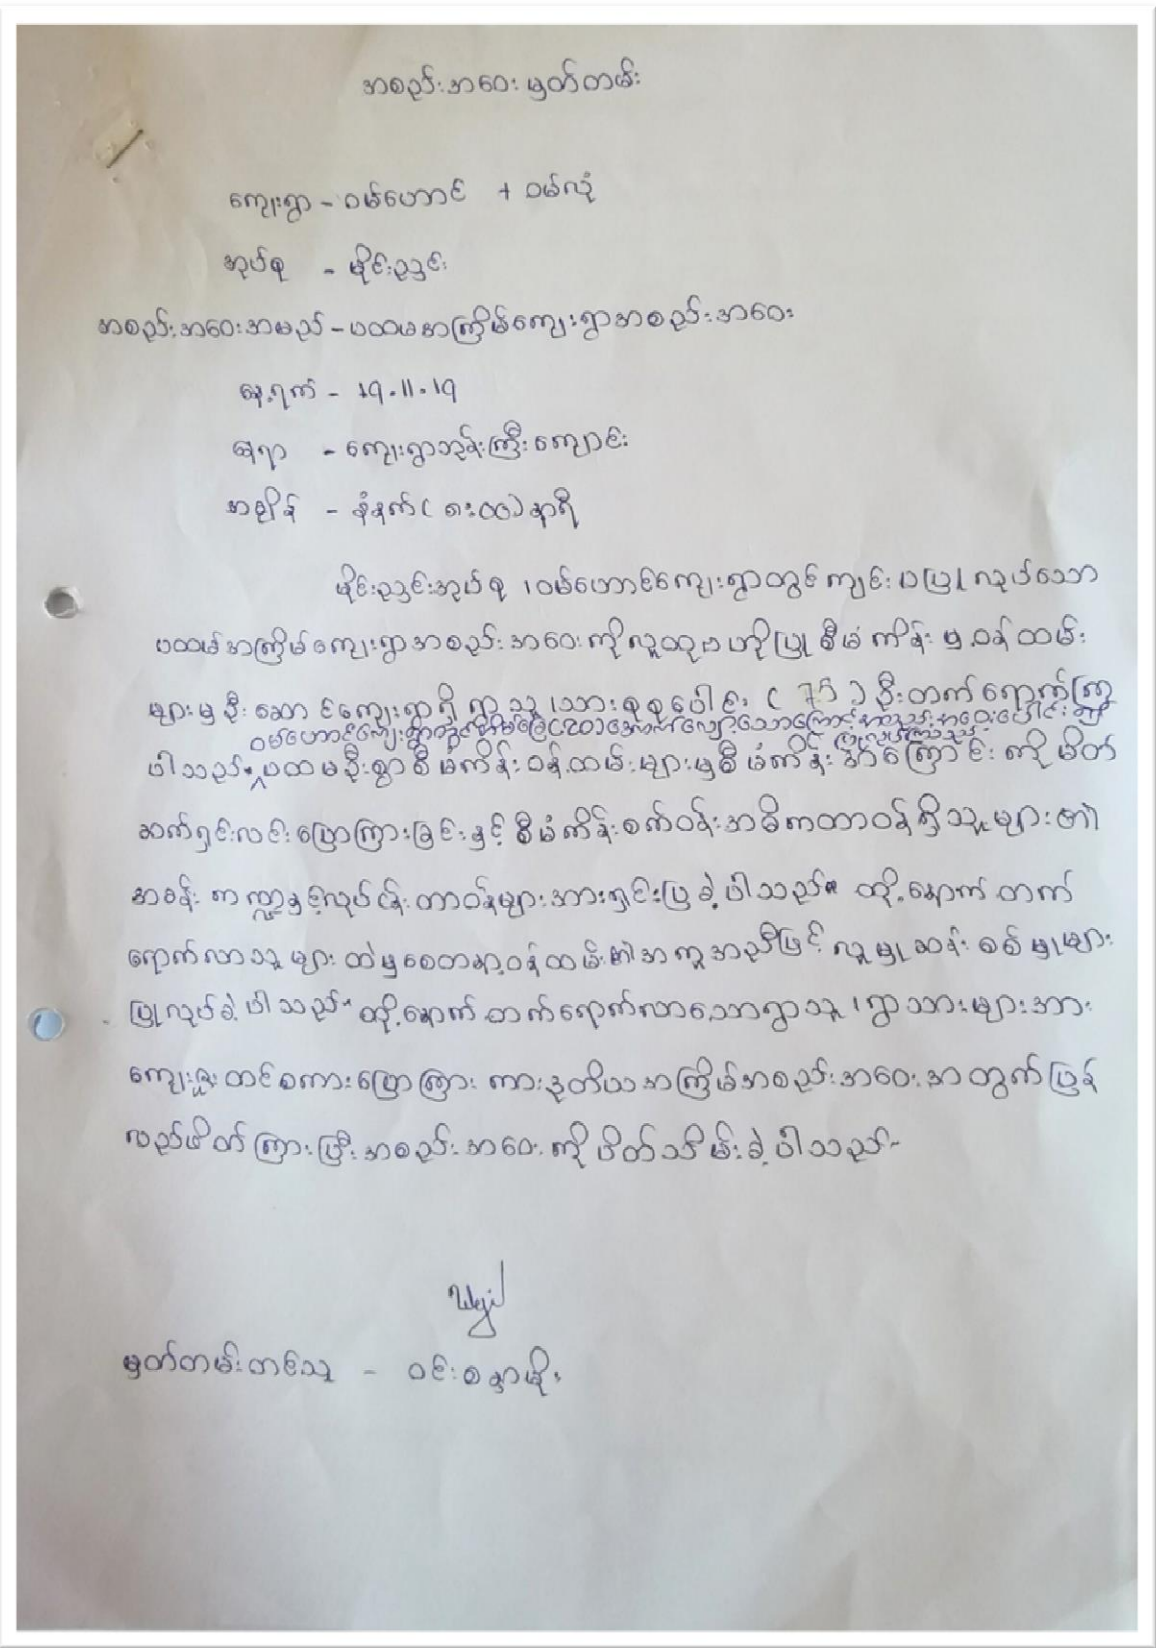 အစည်းအဝေးမှတ်တမ်း
ကျေးရွာ - ဝမ်ဟောင် + ဝမ်လုံ
အုပ်စု - မိုင်းညှင်း
အစည်းအဝေးအမည် - ပထမအကြိမ်ကျေးရွာအစည်းအဝေး
နေ့ရက် - 19.11.19
နေရာ - ကျေးရွာဘုန်းကြီးကျောင်း
အချိန် - နံနက် ( ၈း၀၀ ) နာရီ
မိုင်းညှင်းအုပ်စု ၊ ဝမ်ဟောင်ကျေးရွာတွင်ကျင်းပပြုလုပ်သော
ပထမအကြိမ်ကျေးရွာအစည်းအဝေးကိုလူထုဗဟိုပြုစီမံကိန်းမှ ဝန်ထမ်း
များမှဦးဆောင်ကျေးရွာရှိ ရွာသူ ၊ သားစုစုပေါင်း ( 75 ) ဦးတက်ရောက်ကြ
ဝမ်ဟောင်ကျေးရွာတွင်အိမ်ခြေ (20) အောက်လျော့သောကြောင့် အစည်းအဝေးပေါင်း၍
ပြုလုပ်ကြသည်။
ပါသည်။ ပထမဦးစွာစီမံကိန်းဝန်ထမ်းများမှစီမံကိန်းအကြောင်းကို မိတ်
ဆက်ရှင်းလင်းပြောကြားခြင်းနှင့် စီမံကိန်းစက်ဝန်းအဓိကတာဝန်ရှိသူများ၏
အခန်းကဏ္ဍနှင့်လုပ်ငန်းတာဝန်များအားရှင်းပြခဲ့ပါသည်။ ထို့နောက် တက်
ရောက်လာသူများထဲမှစေတနာ့ဝန်ထမ်း၏အကူအညီဖြင့် လူမှုဆန်းစစ်မှုများ
ပြုလုပ်ခဲ့ပါသည်။ ထို့နောက် တက်ရောက်လာသောရွာသူ ၊ ရွာသားများအား
ကျေးဇူးတင်စကားပြောကြားကာဒုတိယအကြိမ်အစည်းအဝေးအတွက်ပြန်
လည်ဖိတ်ကြားပြီးအစည်းအဝေးကိုပိတ်သိမ်းခဲ့ပါသည်။
မှတ်တမ်းတင်သူ - ဝင်းစန္ဒာမိုး